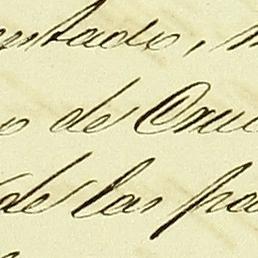 entado,
o de Cruc
de las pa